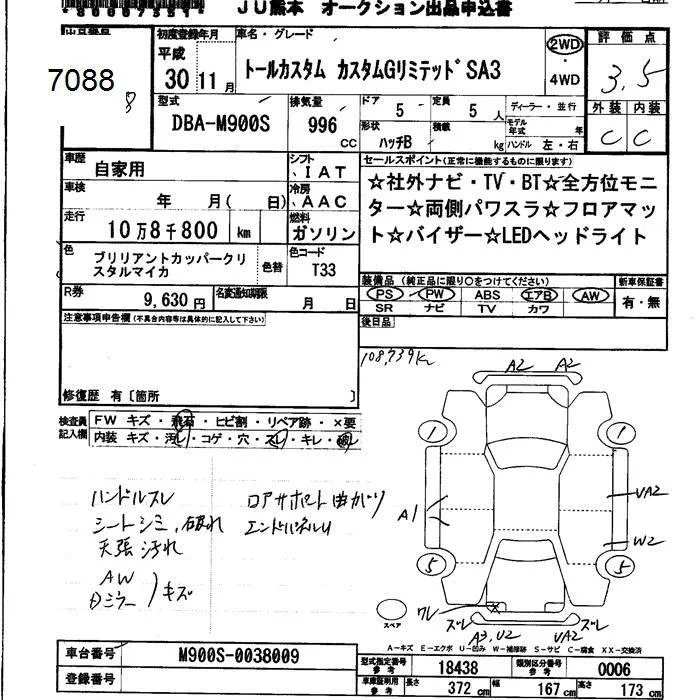 *80087351*
JU熊本 オークション出品申込書
7088
初度登録年月
平成
30 11月
車名・グレード
トールカスタム カスタムGリミテッド SA3
2WD
・
4WD
評価点
3.5
型式
DBA-M900S
排気量
996 cc
ドア 5
定員 5人
形状 ハッチB
積載 kg
ディーラー・並行
モデル年式 年
ハンドル 左・右
外装 内装
C C
車歴 自家用
シフト
、I A T
車検 年 月( 日)
冷房
、A A C
走行 10万8千800 km
燃料
ガソリン
セールスポイント(正常に機能するものに限ります)
☆社外ナビ・TV・BT☆全方位モニ
ター☆両側パワスラ☆フロアマッ
ト☆バイザー☆LEDヘッドライト
色 ブリリアントカッパークリ
スタルマイカ
色替
色コード
T33
装備品 (純正品に限り○をつけてください)
新車保証書
PS PW ABS エアB AW
SR ナビ TV カワ
有・無
R券 9,630円
名変通知期限 月 日
後日品
注意事項申告欄(不具合内容等は具体的に記入して下さい)
108,739km
修復歴 有〔箇所 〕
検査員
記入欄
FW キズ・飛石・ヒビ割・リペア跡・×要
内装 キズ・汚レ・コゲ・穴・スレ・キレ・破レ
A2 A2
1 1
ハンドルスレ
シートシミ、破れ
天張汚れ
AW
ミラー
キズ
ロアサポート曲がり
エンドパネルU
A1
UA2
W2
5 5
スペア
ワレ
ズレ
A3,U2
UA2
ズレ
A-キズ E-エクボ U-凹み W-補修跡 S-サビ C-腐食 XX-交換済
車台番号 M900S-0038009
登録番号
型式指定番号
参考
18438
類別区分番号
参考
0006
車庫証明用
参考
長さ 372 cm 幅 167 cm 高さ 173 cm